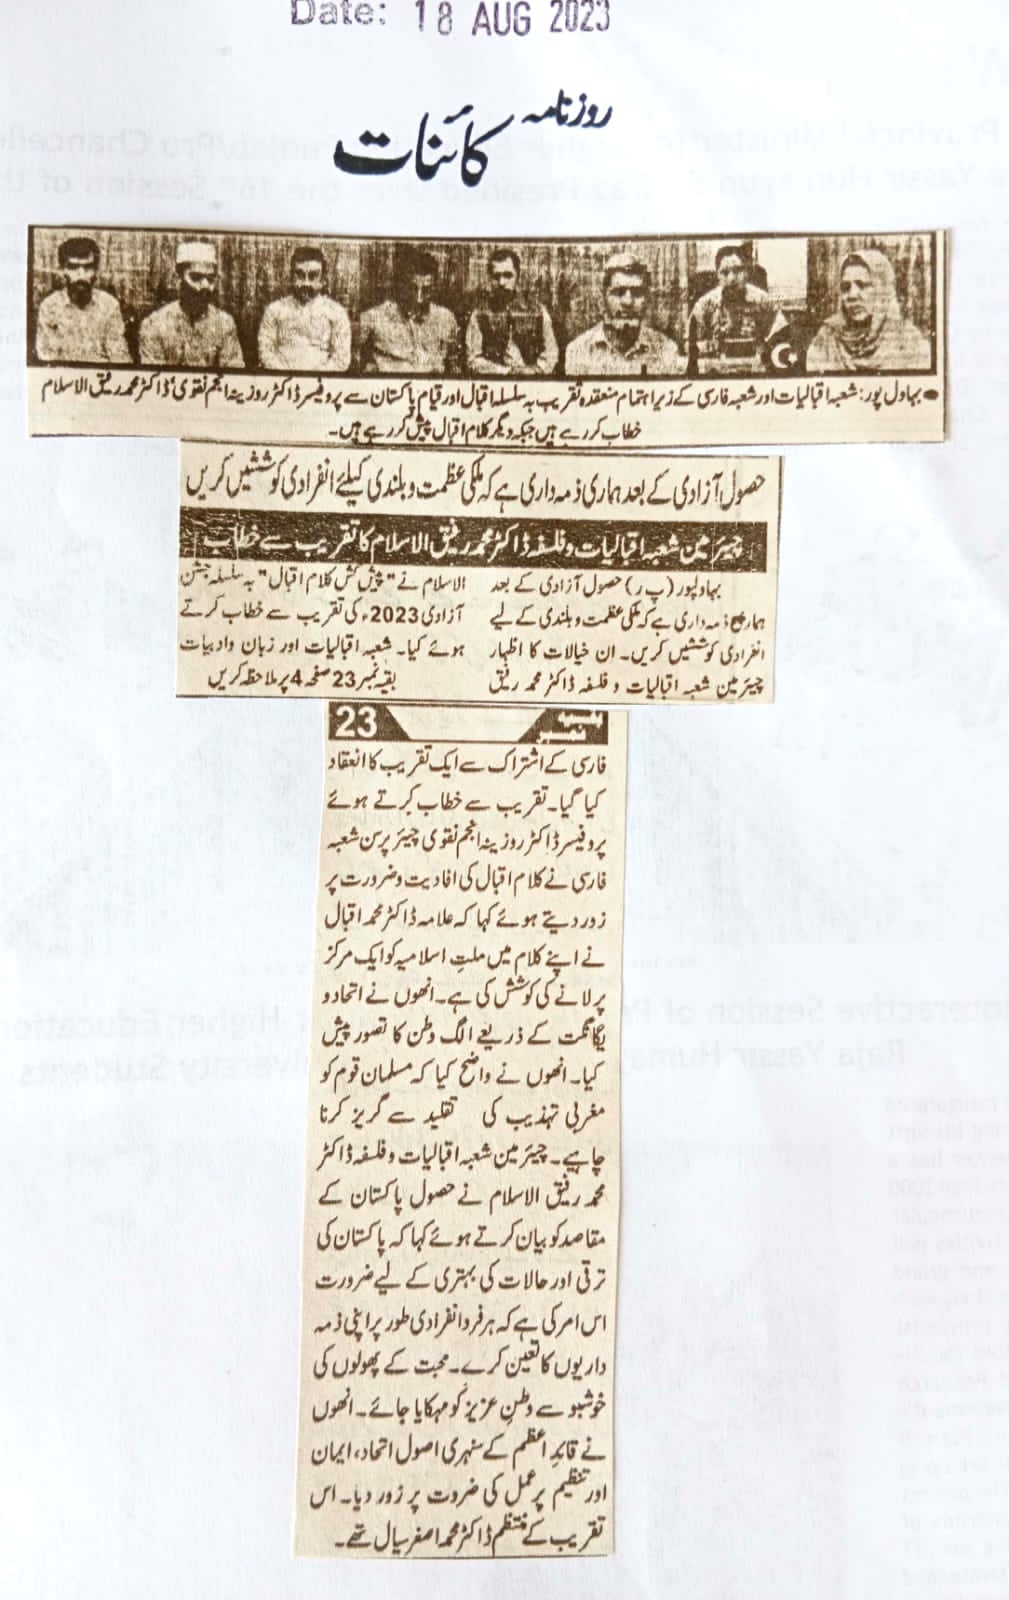 Date: 18 AUG 2023
روزنامہ
کائنات
بہاول پور: شعبہ اقبالیات اور شعبہ فارسی کے زیر اہتمام منعقدہ تقریب بہ سلسلہ اقبال اور قیام پاکستان سے پروفیسر ڈاکٹر روزینہ انجم نقوی، ڈاکٹر محمد رفیق الاسلام
خطاب کر رہے ہیں جبکہ دیگر کلام اقبال پیش کر رہے ہیں۔
حصول آزادی کے بعد ہماری ذمہ داری ہے کہ ملکی عظمت و بلندی کیلئے انفرادی کوششیں کریں
چیئرمین شعبہ اقبالیات و فلسفہ ڈاکٹر محمد رفیق الاسلام کا تقریب سے خطاب
بہاولپور (پ ر) حصول آزادی کے بعد
ہماری ذمہ داری ہے کہ ملکی عظمت و بلندی کے لیے
انفرادی کوششیں کریں۔ ان خیالات کا اظہار
چیئرمین شعبہ اقبالیات و فلسفہ ڈاکٹر محمد رفیق
الاسلام نے "پیش کش کلام اقبال" بہ سلسلہ جشن
آزادی 2023ء کی تقریب سے خطاب کرتے
ہوئے کیا۔ شعبہ اقبالیات اور زبان و ادبیات
بقیہ نمبر 23 صفحہ 4 پر ملاحظہ کریں
بقیہ نمبر 23
فارسی کے اشتراک سے ایک تقریب کا انعقاد
کیا گیا۔ تقریب سے خطاب کرتے ہوئے
پروفیسر ڈاکٹر روزینہ انجم نقوی چیئرپرسن شعبہ
فارسی نے کلام اقبال کی افادیت و ضرورت پر
زور دیتے ہوئے کہا کہ علامہ ڈاکٹر محمد اقبال
نے اپنے کلام میں ملتِ اسلامیہ کو ایک مرکز
پر لانے کی کوشش کی ہے۔ انھوں نے اتحاد و
یگانگت کے ذریعے الگ وطن کا تصور پیش
کیا۔ انھوں نے واضح کیا کہ مسلمان قوم کو
مغربی تہذیب کی تقلید سے گریز کرنا
چاہیے۔ چیئرمین شعبہ اقبالیات و فلسفہ ڈاکٹر
محمد رفیق الاسلام نے حصول پاکستان کے
مقاصد کو بیان کرتے ہوئے کہا کہ پاکستان کی
ترقی اور حالات کی بہتری کے لیے ضرورت
اس امر کی ہے کہ ہر فرد انفرادی طور پر اپنی ذمہ
داریوں کا تعین کرے۔ محبت کے پھولوں کی
خوشبو سے وطنِ عزیز کو مہکایا جائے۔ انھوں
نے قائدِ اعظم کے سنہری اصول اتحاد، ایمان
اور تنظیم پر عمل کی ضرورت پر زور دیا۔ اس
تقریب کے منتظم ڈاکٹر محمد اصغر سیال تھے۔